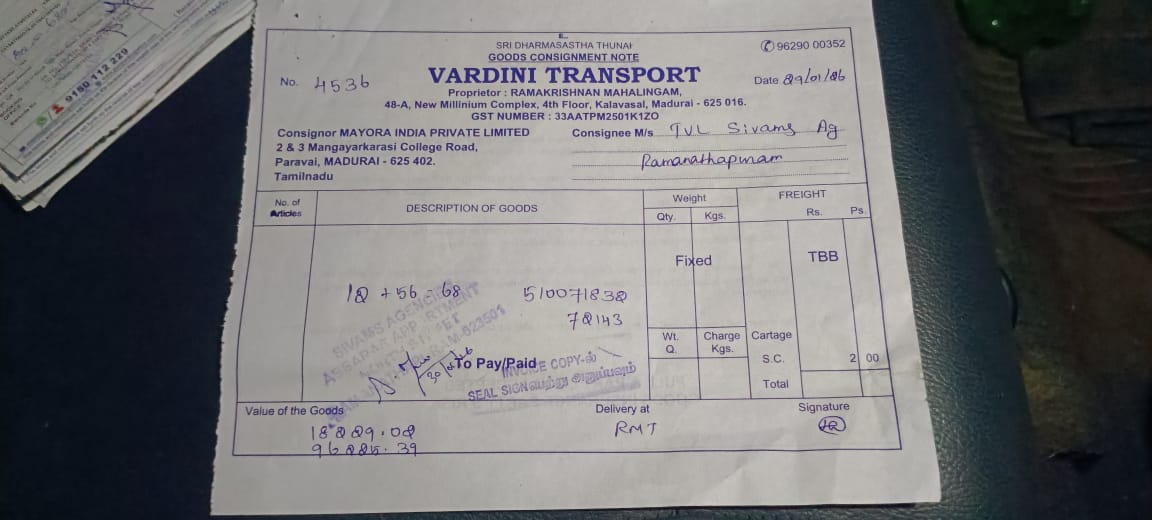 SRI DHARMASASTHA THUNAI
GOODS CONSIGNMENT NOTE
✆ 96290 00352
No. 4536
VARDINI TRANSPORT
Date 29/01/26
Proprietor : RAMAKRISHNAN MAHALINGAM,
48-A, New Millinium Complex, 4th Floor, Kalavasal, Madurai - 625 016.
GST NUMBER : 33AATPM2501K1ZO
Consignor MAYORA INDIA PRIVATE LIMITED
2 & 3 Mangayarkarasi College Road,
Paravai, MADURAI - 625 402.
Tamilnadu
Consignee M/s TVL Sivams Ag
Ramanathapuram
No. of Articles
DESCRIPTION OF GOODS
Weight
Qty. Kgs.
FREIGHT
Rs. Ps.
Fixed
TBB
12 + 56 = 68
510071832
72143
Wt. Q.
Charge Kgs.
Cartage
S.C. 2 00
Total
SIVAMS AGENCIES
30/1/26
To Pay/Paid
INVOICE COPY-ல்
SEAL SIGN பெற்று அனுப்பவும்
Value of the Goods
18229.02
96225.39
Delivery at
RMT
Signature
9150 112 229